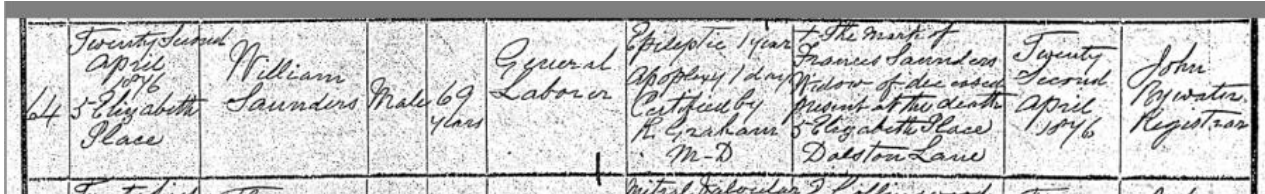 64
Twenty Second
April
1876
5 Elizabeth
Place
William
Saunders
Male
69
years
General
Laborer
Epileptic 1 year
Apoplexy 1 day
Certified by
R. Graham
M-D
X The mark of
Frances Saunders
Widow of deceased
present at the death
5 Elizabeth Place
Dalston Lane
Twenty
Second
April
1876
John
Bywater
Registrar
Mitral Valvular